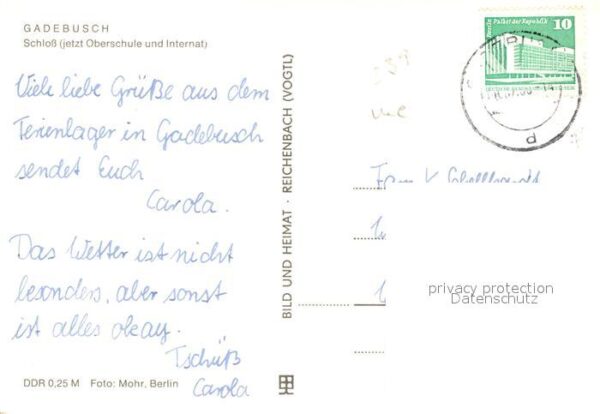 GADEBUSCH
Schloß (jetzt Oberschule und Internat)
Viele liebe Grüße aus dem
Ferienlager in Gadebusch
sendet Euch
Carola.
Das Wetter ist nicht
besonders, aber sonst
ist alles okay.
Tschüß
Carola
DDR 0,25 M Foto: Mohr, Berlin
BILD UND HEIMAT · REICHENBACH (VOGTL)
Berlin Palast der Republik 10
privacy protection
Datenschutz